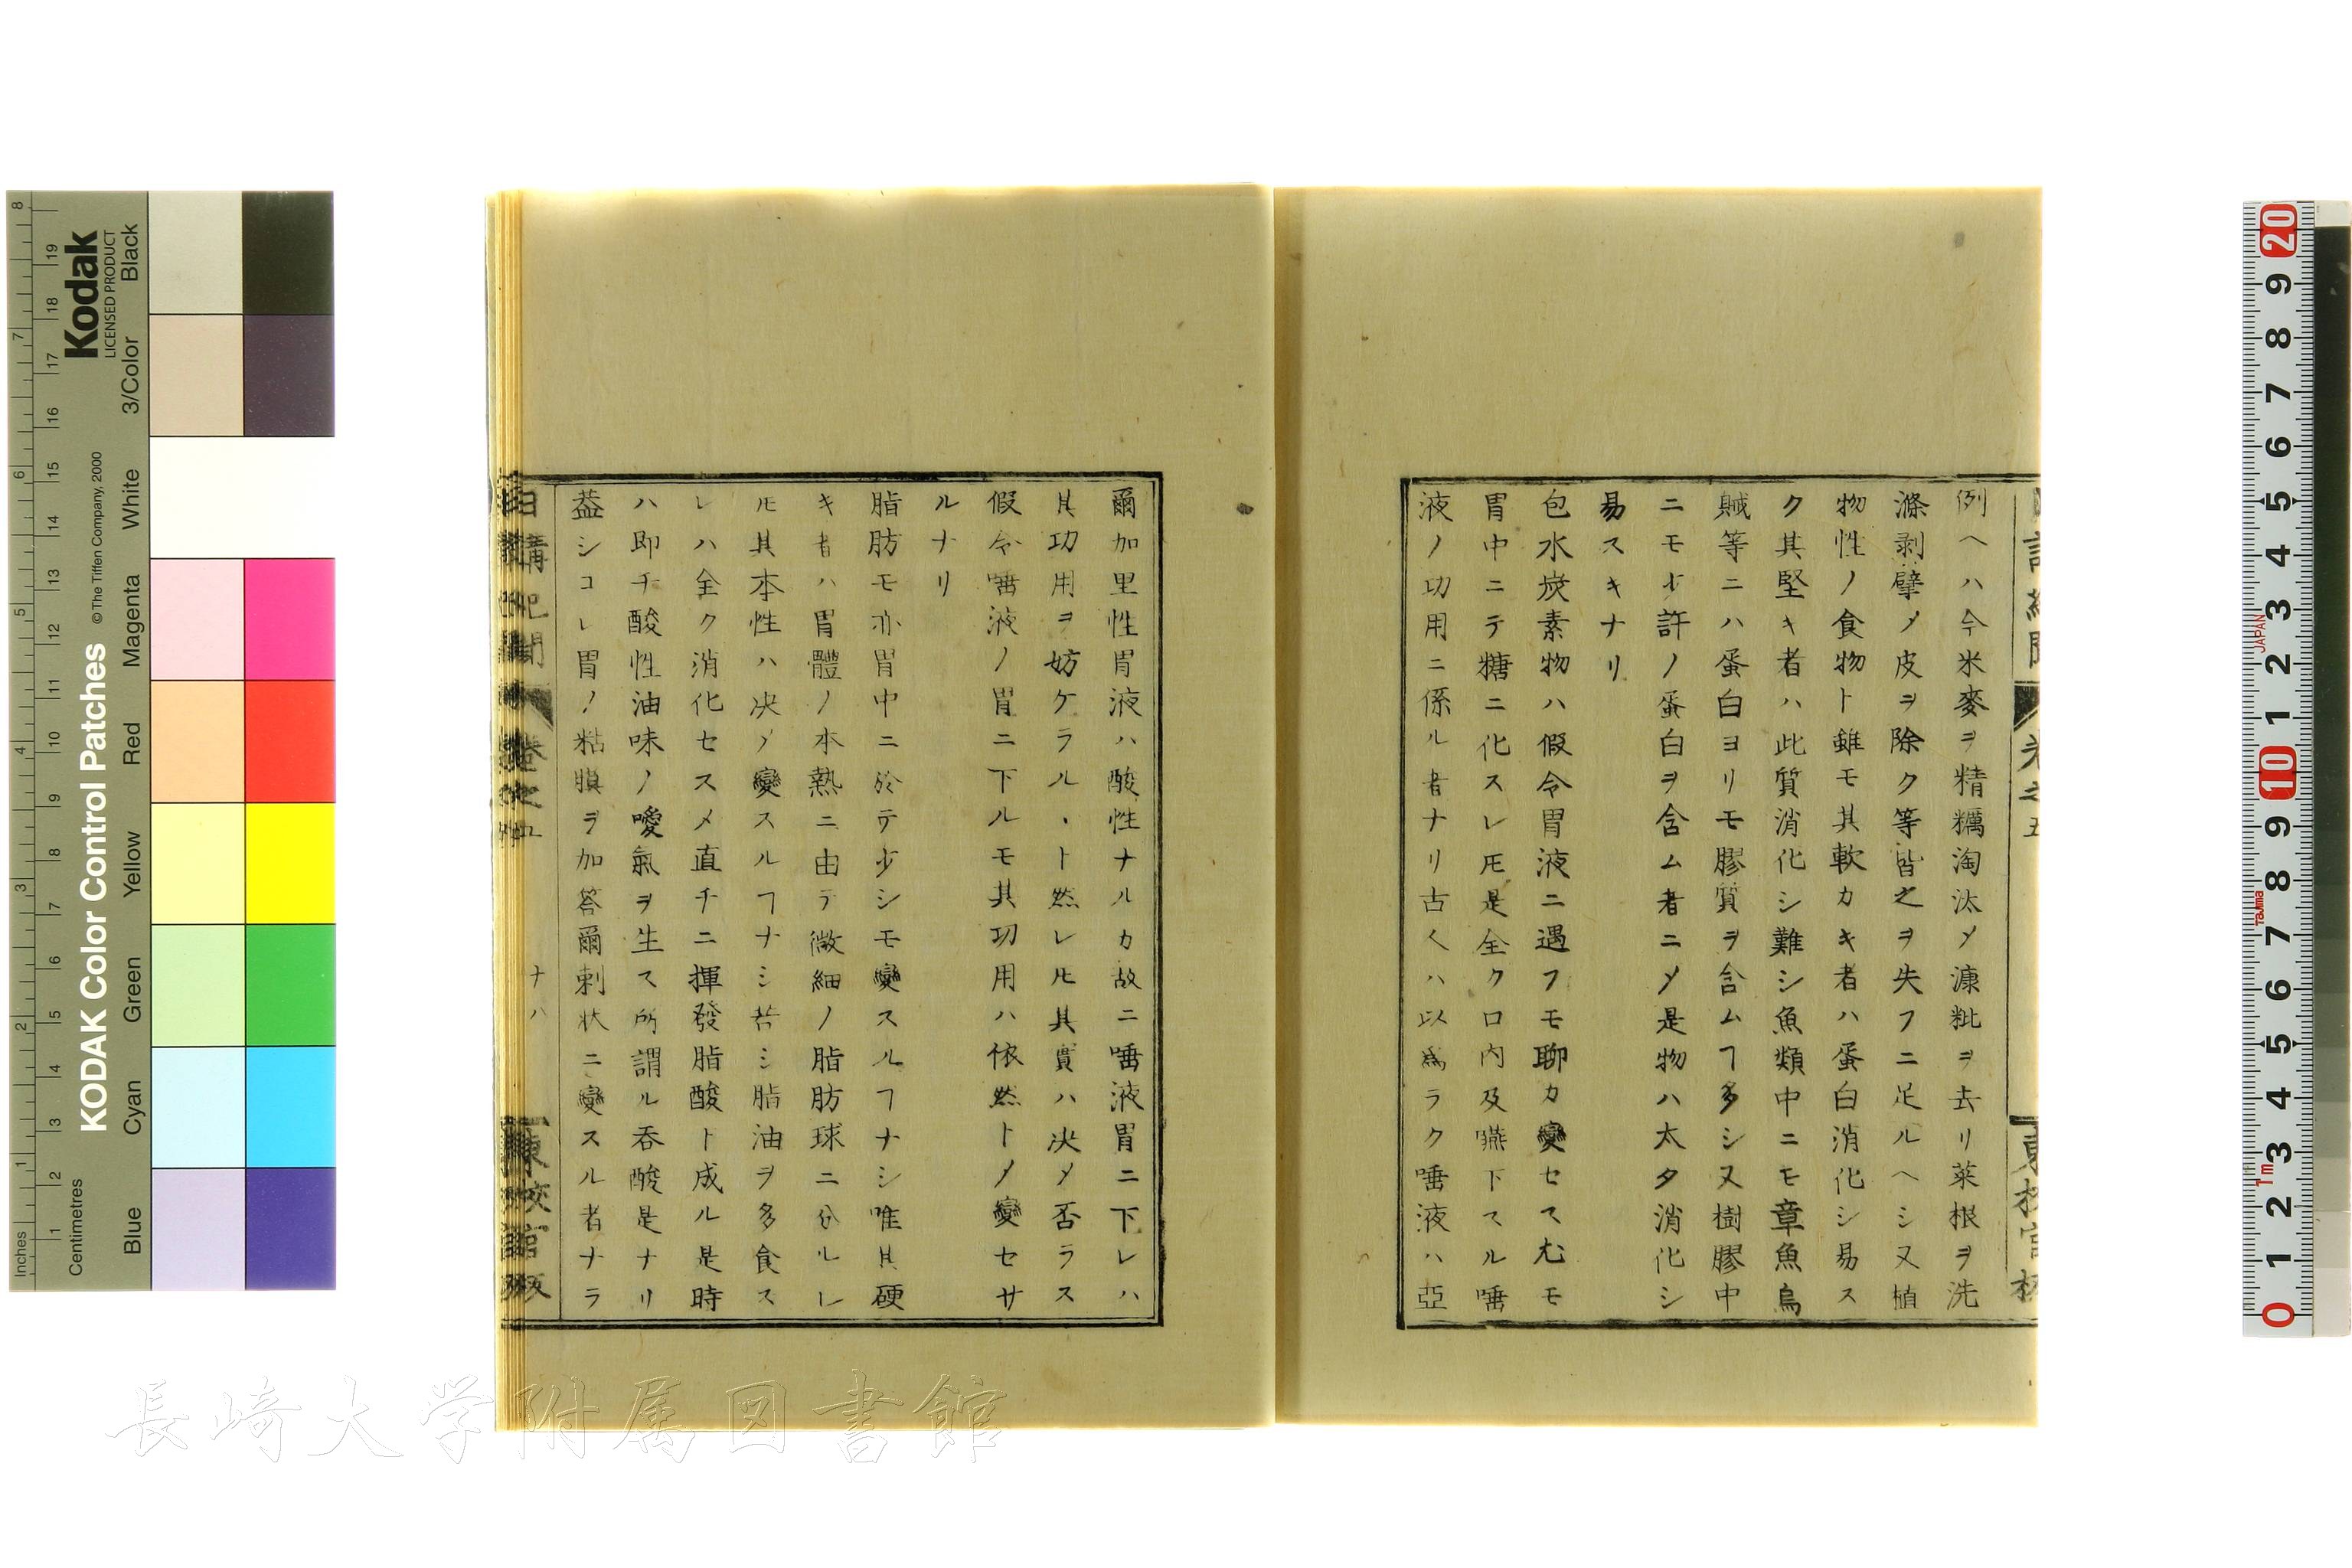 例ヘハ今米麥ヲ精糲淘汰〆漮粃ヲ去リ菜根ヲ洗
滌剥擘〆皮ヲ除ク等皆之ヲ失フニ足ルヘシ又植
物性ノ食物ト雖モ其軟カキ者ハ蛋白消化シ易ス
ク其堅キ者ハ此質消化シ難シ魚類中ニモ章魚烏
賊等ニハ蛋白ヨリモ膠質ヲ含ムヿ多シ又樹膠中
ニモ少許ノ蛋白ヲ含ム者ニ〆是物ハ太タ消化シ
易スキナリ
包水炭素物ハ假令胃液ニ遇フモ聊カ變セス尤モ
胃中ニテ糖ニ化スレ𪜈是全ク口内及嚥下スル唾
液ノ功用ニ係ル者ナリ古人ハ以爲ラク唾液ハ亞
爾加里性胃液ハ酸性ナルカ故ニ唾液胃ニ下レハ
其功用ヲ妨ケラル丶ト然レ𪜈其實ハ决〆否ラス
假令唾液ノ胃ニ下ルモ其功用ハ依然ト〆變セサ
ルナリ
脂肪モ亦胃中ニ於テ少シモ變スルヿナシ唯其硬
キ者ハ胃體ノ本熱ニ由テ微細ノ脂肪球ニ分ルレ
𪜈其本性ハ决〆變スルヿナシ若シ脂油ヲ多食ス
レハ全ク消化セス〆直チニ揮發脂酸ト成ル是時
ハ即チ酸性油味ノ噯氣ヲ生ス所謂ル呑酸是ナリ
葢シコレ胃ノ粘膜ヲ加答爾剌狀ニ變スル者ナラ
日講記聞 卷之五 十八
長崎大学附属図書館
KODAK Color Control Patches
Kodak
LICENSED PRODUCT
© The Tiffen Company, 2000
Inches
Centimetres
Blue Cyan Green Yellow Red Magenta White 3/Color Black
JAPAN
Tajima
1m